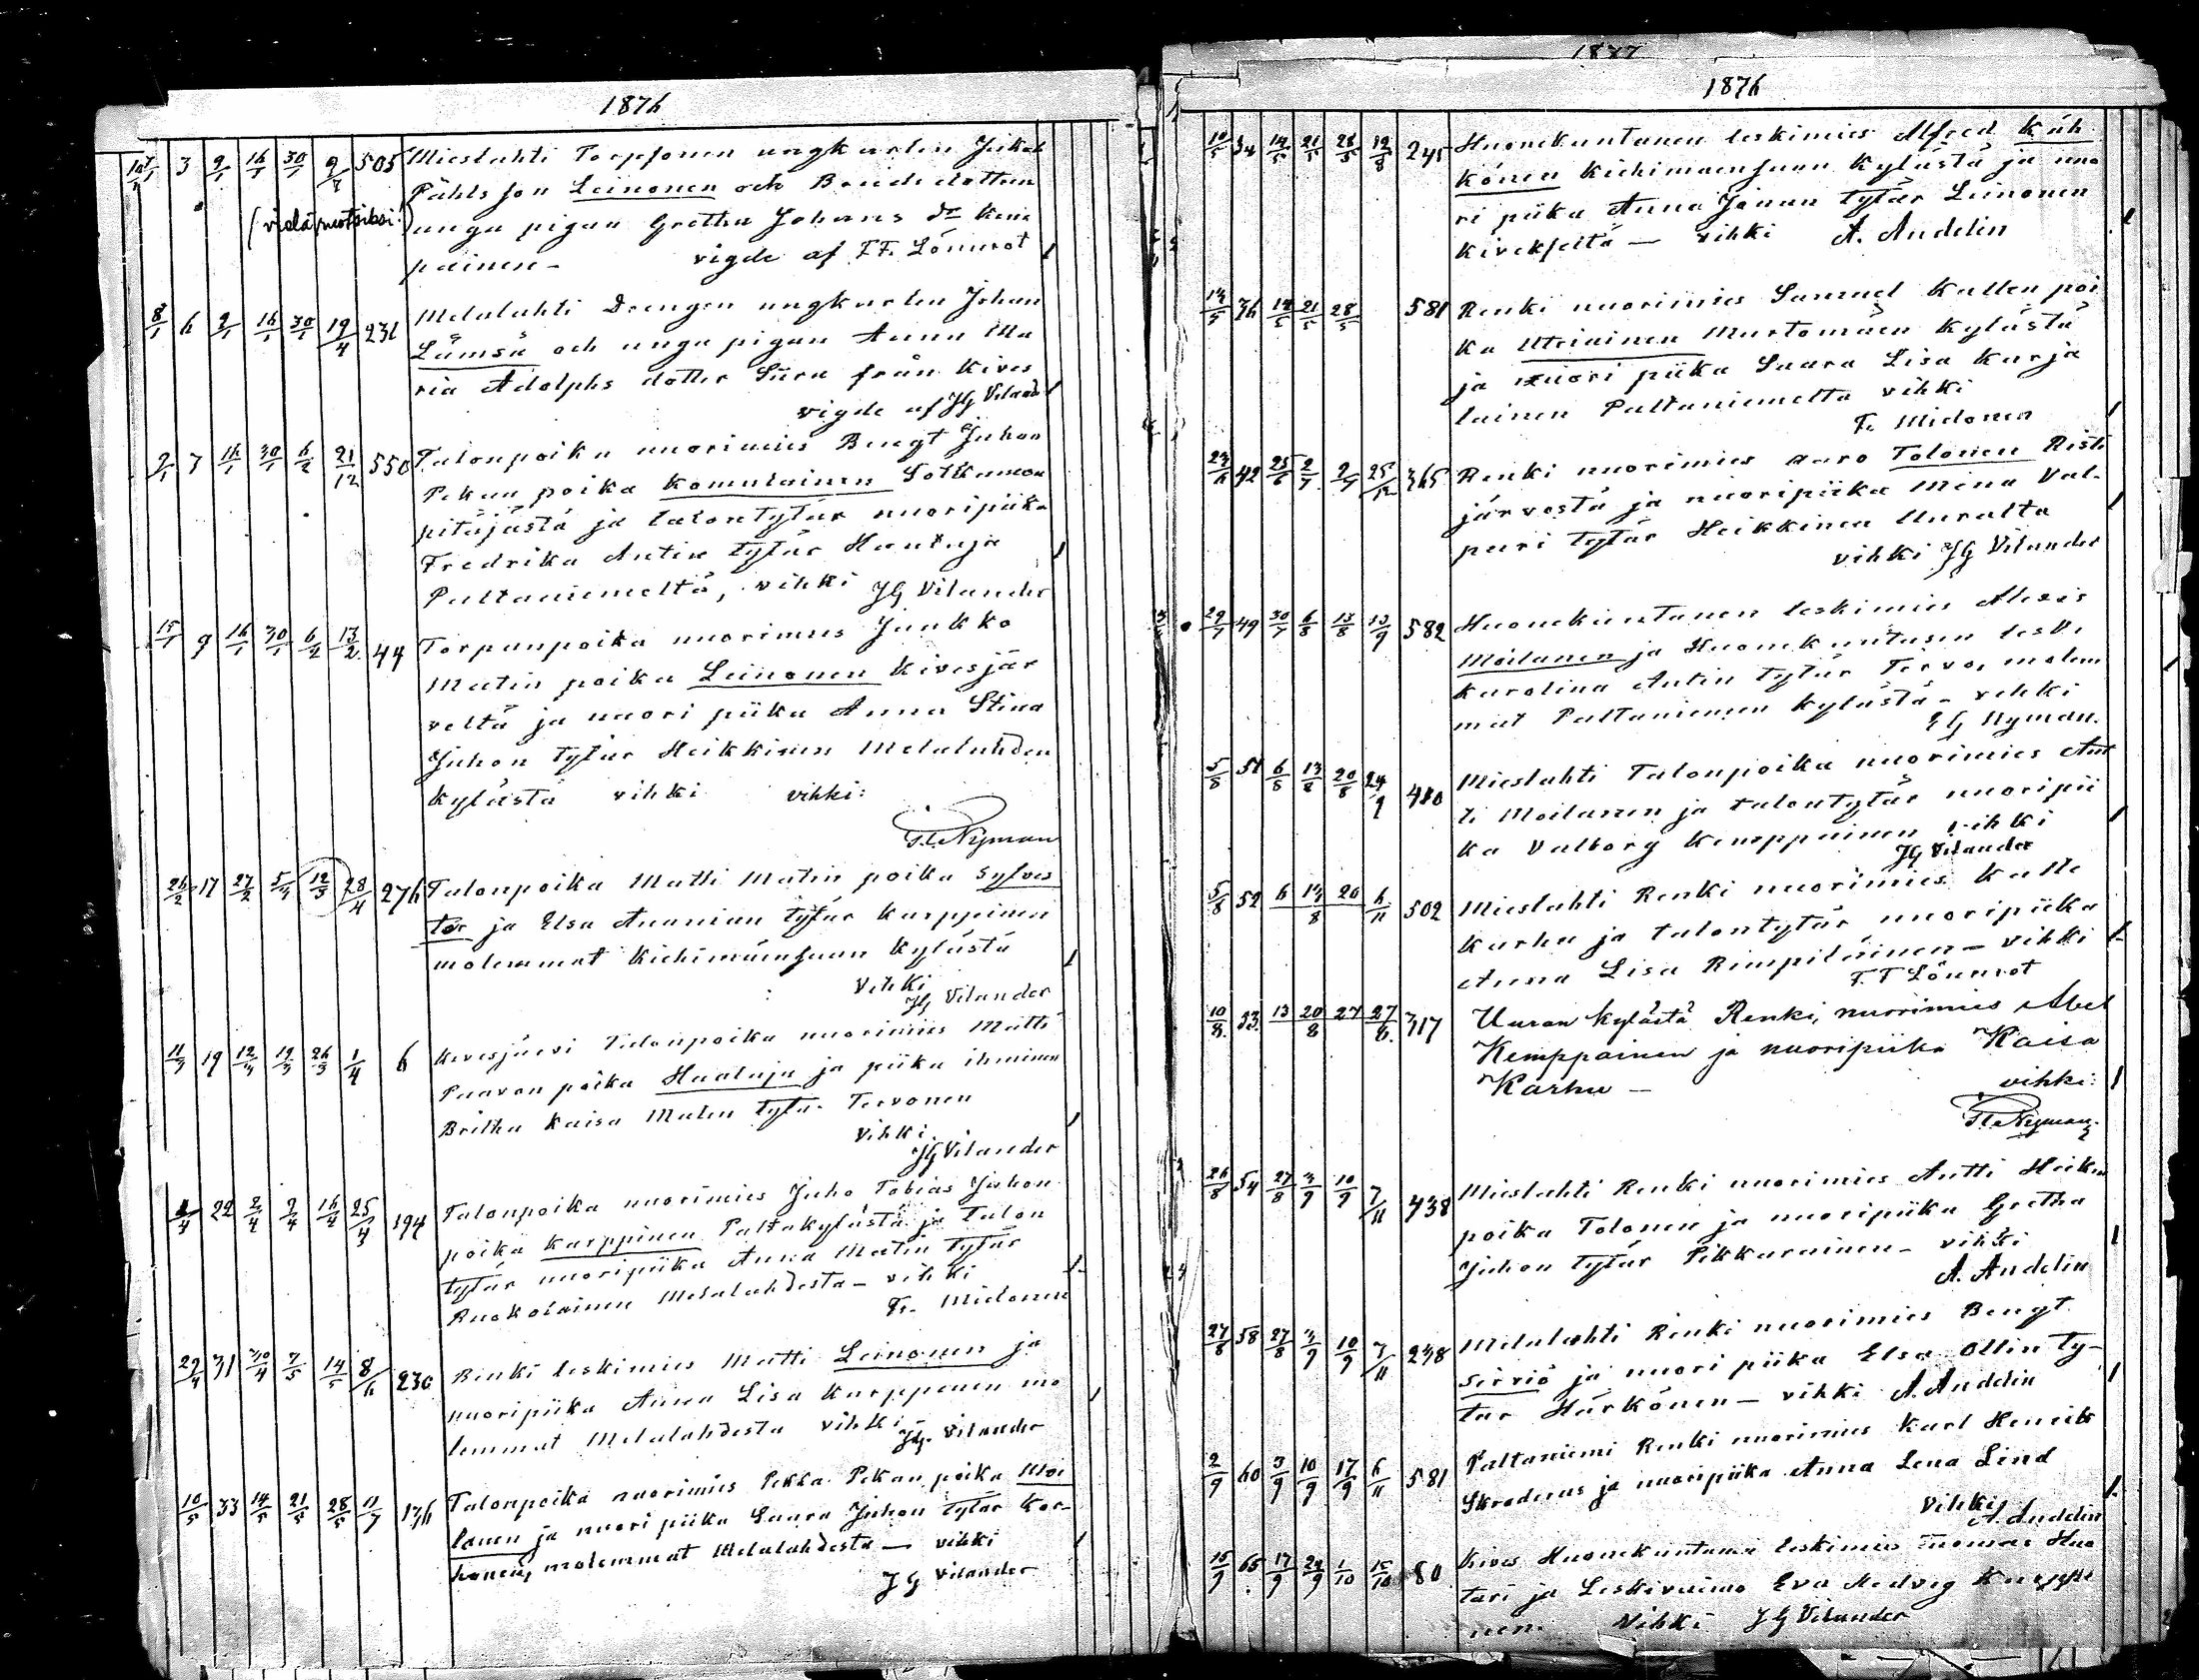 1876
10/1 3 9/1 16/1 30/1 9/7 505 Mieslahti Torpsonen ungkarlen Jukob
Påhlsson Leinonen och Bondedottern
(vielä ruotsiksi!) unga pigan Gretha Johans dr Kem
painen - vigde af F.F. Lönnrot
8/1 6 9/1 16/1 30/1 19/4 231 Melalahti Drengen ungkarlen Johan
Lämsä och unga pigan Anna Ma
ria Adolphs dotter Siira från Kives
vigde af JG Viland
9/1 7 16/1 30/1 6/2 21/12 550 Talonpoika nuorimies Bengt Juhon
Pekan poika Komulainen Sotkamon
pitäjästä ja talontytär nuoripiika
Fredrika Antin tytär Hautaja
Paltaniemeltä, vihki JG Vilander
15/1 9 16/1 30/1 6/2 13/2 44 Torpanpoika nuorimies Jaakko
Matin poika Leinonen Kivesjär
veltä ja nuori piika Anna Stina
Juhon tytär Heikkinen Melalahden
kylästä vihki vihki:
F.E. Nyman
26/2 17 27/2 5/3 12/3 28/4 276 Talonpoika Matti Matin poika Sylves
ter ja Elsa Ananian tytär Karppinen
molemmat Kiehimäensuun kylästä
vihki
JG Vilander
11/3 19 12/3 19/3 26/3 1/4 6 Kivesjärvi Talonpoika nuorimies Matti
Paavon poika Haataja ja piika ihminen
Britha Kaisa Matin tytär Tervonen
vihki
JG Vilander
1/4 22 2/4 9/4 16/4 25/4 194 Talonpoika nuorimies Juho Tobias Juhon
poika Karppinen Paltakylästä ja Talon
tytär nuoripiika Anna Matin tytär
Ruokolainen Melalahdesta - vihki
Fr. Midonen
29/4 31 30/4 7/5 14/5 8/6 230 Renki leskimies Matti Leinonen ja
nuoripiika Anna Lisa Karppinen mo
lemmat Melalahdesta vihki
JG. Vilander
10/5 33 14/5 21/5 28/5 11/7 176 Talonpoika nuorimies Pekka Pekan poika Moi
lanen ja nuori piika Saara Juhon tytär Kor-
honen, molemmat Melalahdesta - vihki
JG Vilander
1877
1876
10/5 34 14/5 21/5 28/5 12/8 245 Huonekuntanen leskimies Alfred Käh
könen Kiehimaensuun kylästä ja nuo
ri piika Anna Janan tytär Leinonen
Kivekseltä - vihki A. Andelin
14/5 36 14/5 21/5 28/5 581 Renki nuorimies Samuel Kallen poi
ka Utriainen Murtomäen kylästä
ja nuori piika Saara Lisa Karja
lainen Paltaniemelta vihki
Fr. Midonen
23/6 42 25/6 2/7 9/7 25/12 365 Renki nuorimies Aaro Tolonen Risti
järvestä ja nuoripiika Mina Val-
puri tytär Heikkinen Uuralta
vihki JG Vilander
29/7 49 30/7 6/8 13/8 13/9 582 Huonekuntanen leskimies Alexis
Moilanen ja Huonekuntasen leski
Karolina Antin tytär Tervo, molem
mat Paltaniemen kylästä - vihki
F G Nyman.
5/8 51 6/8 13/8 20/8 24/9 480 Mieslahti Talonpoika nuorimies Ant
ti Moilanen ja talontytär nuoripii
ka Valborg Kemppainen vihki
JG Vilander
5/8 52 6 13/8 20 6/11 502 Mieslahti Renki nuorimies Kalle
Karhu ja talontytär nuoripiika
Anna Lisa Rimpiläinen - vihki
F.F Lönnrot
10/8. 53. 13 20/8 27 27/6. 317 Uuran kylästä Renki, nuorimies Abel
Kemppainen ja nuoripiika Kaisa
Karhu - vihki:
F.E. Nyman
26/8 54 27/8 3/9 10/9 7/11 438 Mieslahti Renki nuorimies Antti Heikin
poika Tolonen ja nuoripiika Gretha
Juhon tytär Pikkarainen - vihki
A. Andelin
27/8 58 27/8 3/9 10/9 7/11 238 Melalahti Renki nuorimies Bengt
Sirviö ja nuori piika Elsa Ollin ty-
tär Härkönen - vihki A. Andelin
2/9 60 3/9 10/9 17/9 6/11 581 Paltaniemi Renki nuorimies Karl Henrik
Skroderus ja nuoripiika Anna Lena Lind
vihki
A. Andelin
15/9 65 17/9 24/9 1/10 15/10 80 Kives Huonekuntanen leskimies Tuomas Huo
tari ja Leskivaimo Eva Hedvig Karppi
nen. Vihki JG Vilander